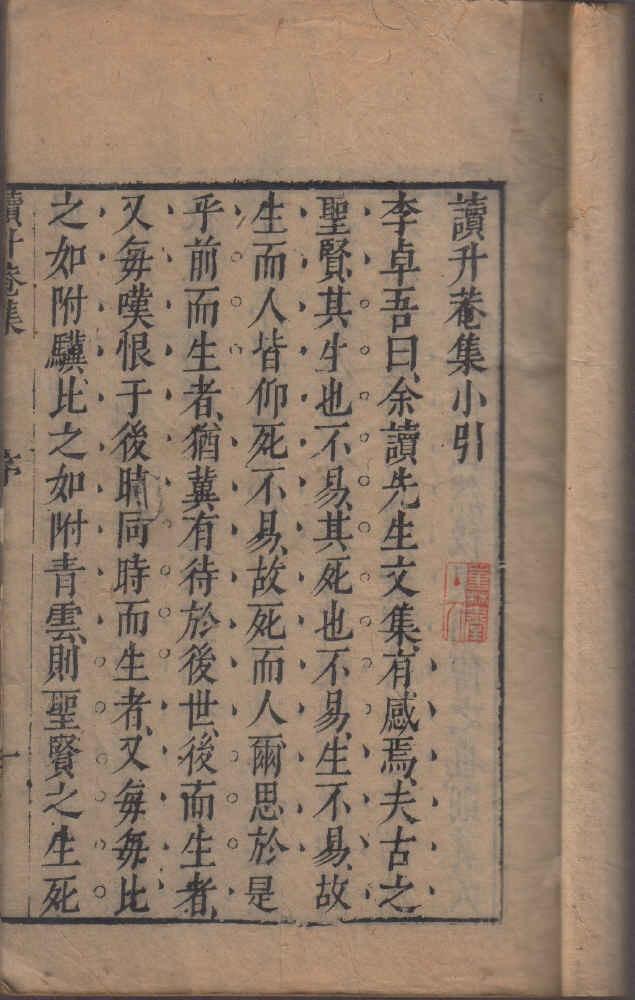 讀升菴集小引
李卓吾曰、余讀先生文集、有感焉、夫古之
聖賢、其生也不易、其死也不易、生不易、故
生而人皆仰、死不易、故死而人爾思、於是
乎前而生者、猶冀有待於後世、後而生者、
又每嘆恨于後時、同時而生者、又每每比
之如附驥、比之如附青雲、則聖賢之生死
讀升菴集
序
一